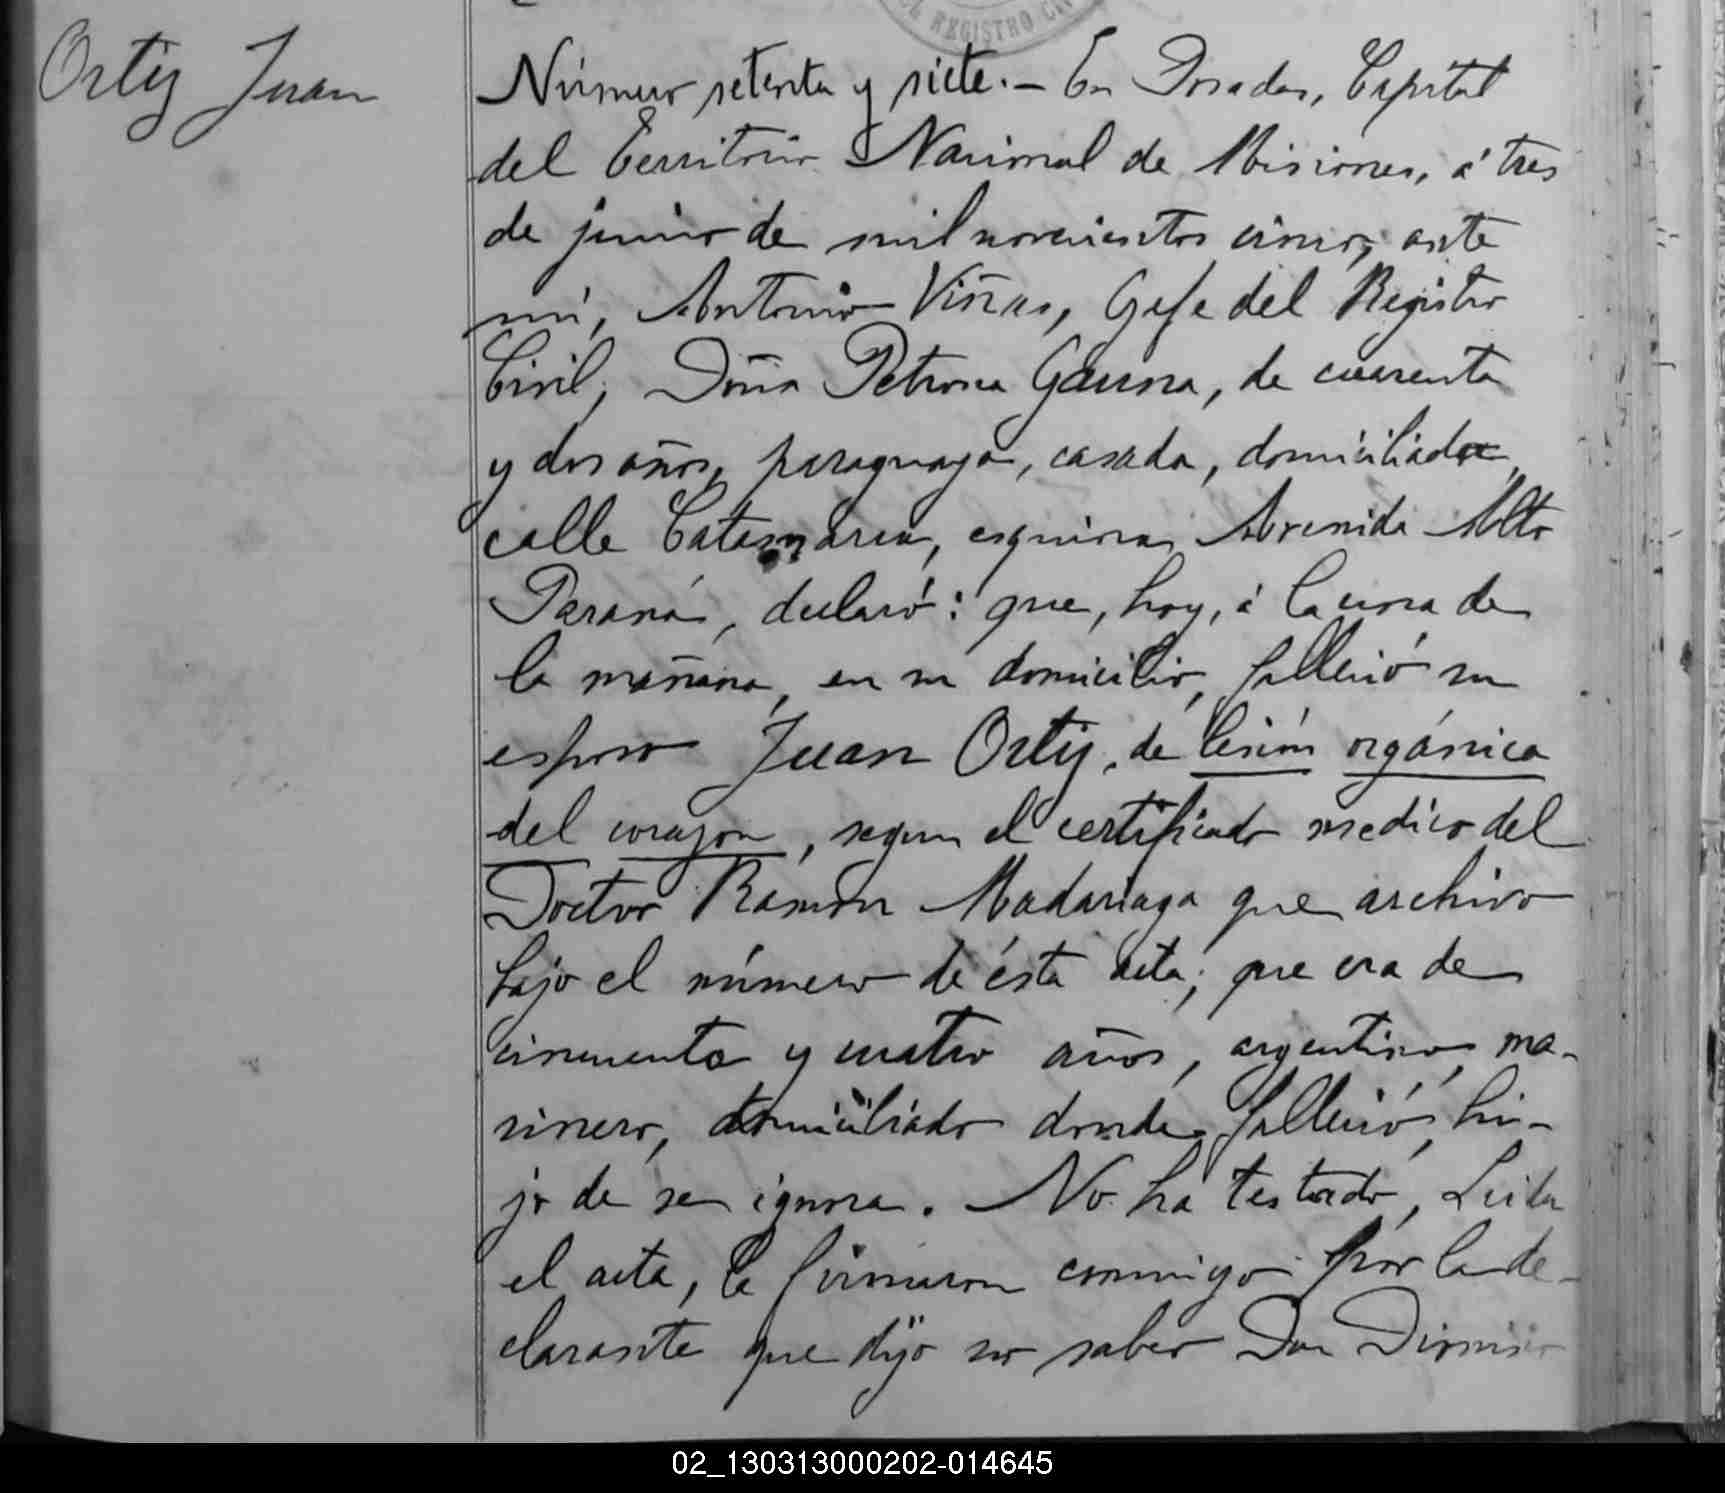 Ortiz Juan
EL REGISTRO CIV
Número setenta y siete.- En Posadas, Capital
del Territorio Nacional de Misiones, á tres
de junio de mil novecientos cinco, ante
mí, Antonio Viñas, Gefe del Registro
Civil, Doña Petrona Gauna, de cuarenta
y dos años, paraguaya, casada, domiciliada
calle Catamarca, esquina Avenida Alto
Paraná, declaró: que, hoy, á la una de
la mañana, en su domicilio, falleció su
esposo Juan Ortiz, de lesión orgánica
del corazon, segun el certificado medico del
Doctor Ramón Madariaga que archivo
bajo el número de ésta acta; que era de
cincuenta y cuatro años, argentino, ma-
rinero, domiciliado donde falleció, hi-
jo de se ignora. No ha testado, Leida
el acta, la firmaron conmigo por la de-
clarante que dijo no saber Don Dionisio
02_130313000202-014645